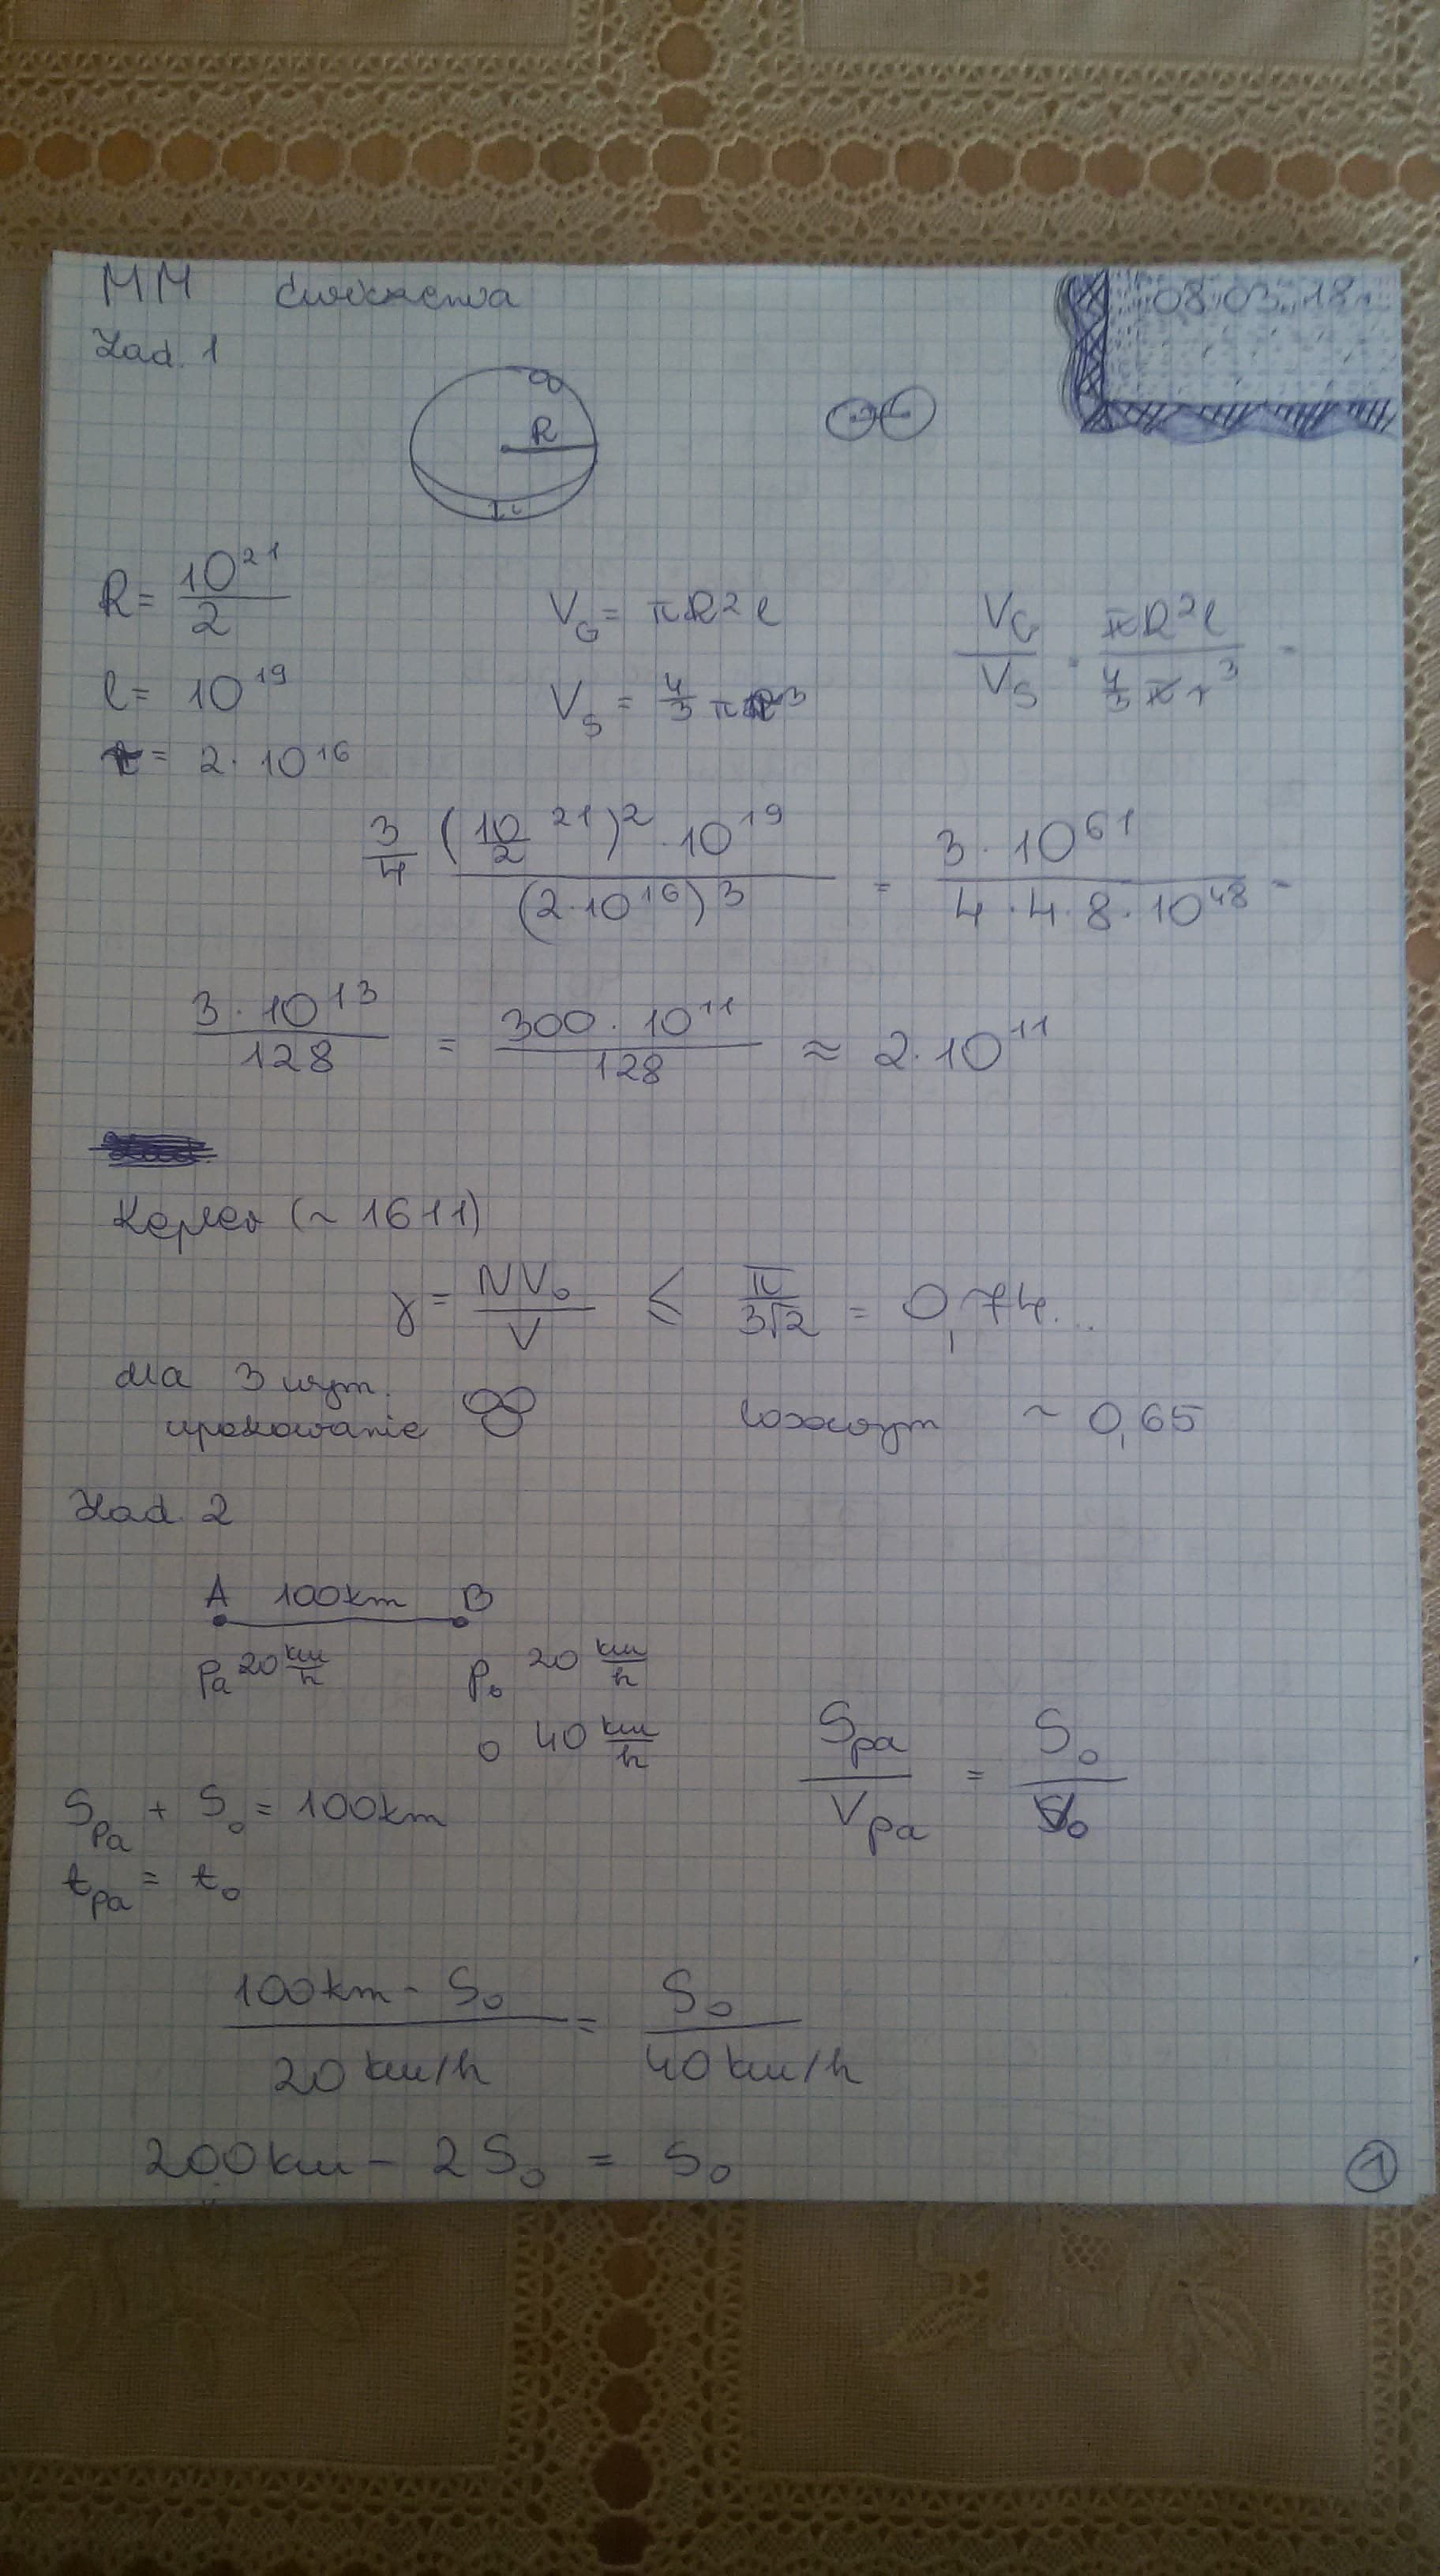 MM ćwiczenia 08.03.18r.
Zad. 1
R
l
R = 10²¹/2
V_G = πR²l
V_G/V_S = πR²l / (4/3 πr³) =
l = 10¹⁹
V_S = 4/3 πr³
r = 2·10¹⁶
3/4 (10/2 ²¹)²·10¹⁹ / (2·10¹⁶)³ = 3·10⁶¹ / (4·4·8·10⁴⁸) =
3·10¹³/128 = 300·10¹¹/128 ≈ 2·10¹¹
Kepler (~1611)
γ = NV₀/V ≤ π/(3√2) = 0,74...
dla 3 wym.
upakowanie losowym ~ 0,65
Zad. 2
A 100km B
Pa 20 km/h P_b 20 km/h
o 40 km/h
S_pa/V_pa = S_o/V_o
S_pa + S_o = 100km
t_pa = t_o
(100km - S_o) / 20km/h = S_o / 40km/h
200km - 2S_o = S_o
1